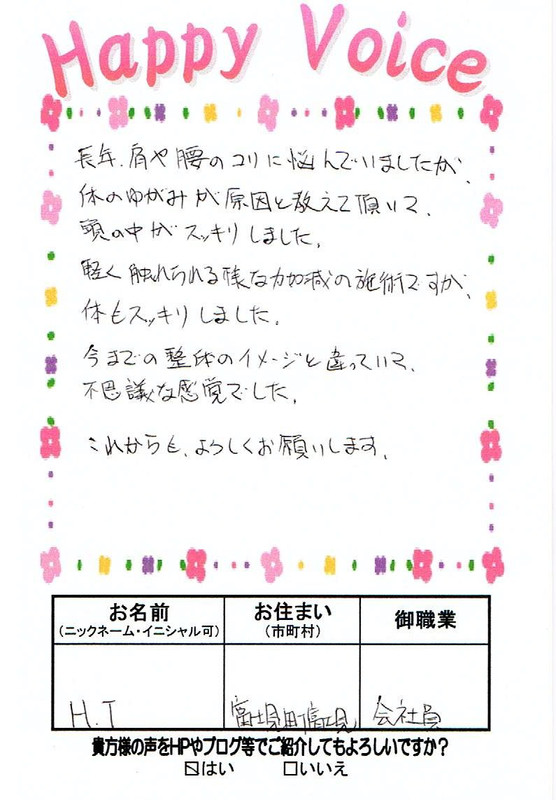 Happy Voice
長年、肩や腰のコリに悩んでいましたが、
体のゆがみが原因と教えて頂いて、
頭の中がスッキリしました。
軽く触れられる様な力加減の施術ですが、
体もスッキリしました。
今までの整体のイメージと違っていて、
不思議な感覚でした。
これからも、よろしくお願いします。
お名前 お住まい 御職業
(ニックネーム・イニシャル可) (市町村)
H.T 富士見町富士見 会社員
貴方様の声をHPやブログ等でご紹介してもよろしいですか?
☑はい □いいえ